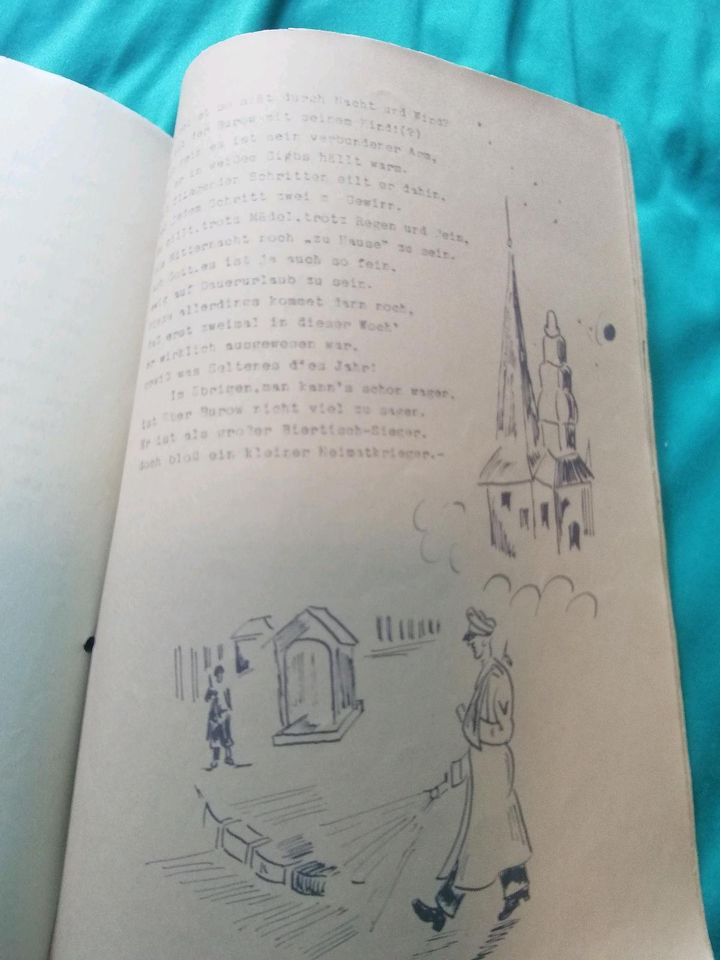 so spät durch Nacht und Wind?
der Burow mit seinem Kind!(?)
nein es ist sein verbundener Arm,
er in weißen hüllt warm.
fliegender Schritten eilt er dahin,
jedem Schritt zwei Gewinn.
gilt,trotz Mädel,trotz Regen und Pein,
Mitternacht noch „zu Hause" zu sein.
Gott,es ist ja auch so fein,
auf Dauerurlaub zu sein.
allerdings kommt dann noch,
erst zweimal in dieser Woch'
er wirklich ausgewesen war.
was Seltenes dies Jahr!
Im übrigen,man kann's schon wagen,
ist über Burow nicht viel zu sagen.
Er ist als großer Biertisch-Sieger,
doch bloß ein kleiner Heimatkrieger.-